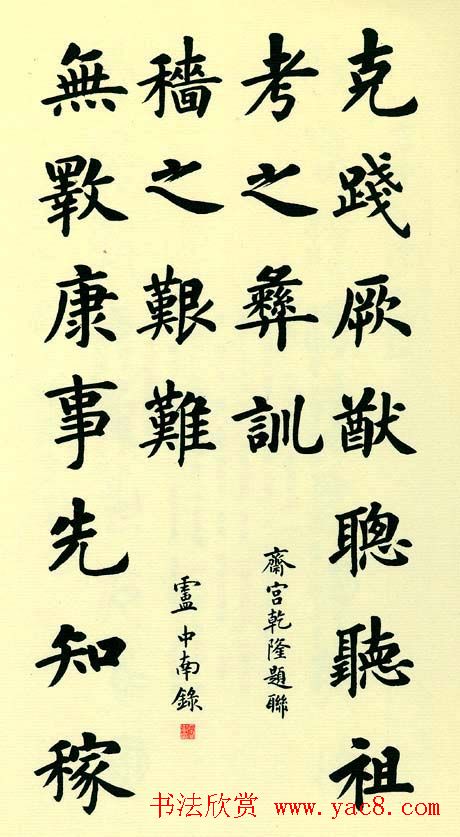 克踐厥猷聰聽祖
考之彝訓
齋宮乾隆題聯
無斁康事先知稼
穡之艱難
盧中南錄
书法欣赏 www.yac8.com